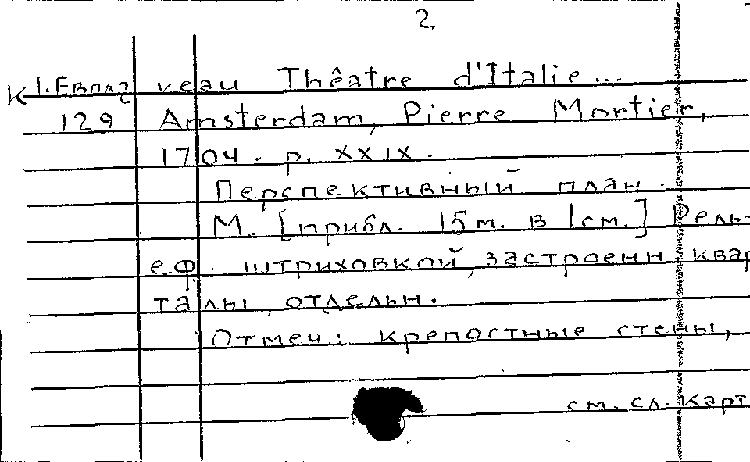 2.
К 1. Европ veau Théatre d'Italie...
129 Amsterdam, Pierre Mortier,
1704. p. XXIX.
Перспективный план.
М. [прибл. 15м. в 1см.] Рель-
еф. штриховкой, застроенн. квар
талы отдельн.
Отмеч: крепостные стены,
см. сл. карт